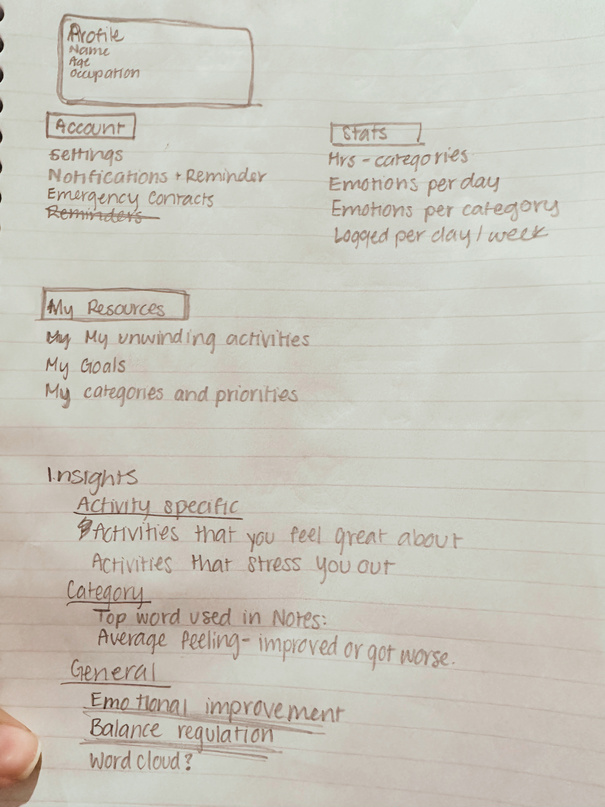 Profile
Name
Age
Occupation
Account
Settings
Notifications + Reminder
Emergency Contacts
Reminders
Stats
Hrs - categories
Emotions per day
Emotions per category
Logged per day / week
My Resources
My My unwinding activities
My Goals
My categories and priorities
Insights
Activity specific
Activities that you feel great about
Activities that stress you out
Category
Top word used in Notes:
Average feeling - improved or got worse.
General
Emotional improvement
Balance regulation
Word cloud?